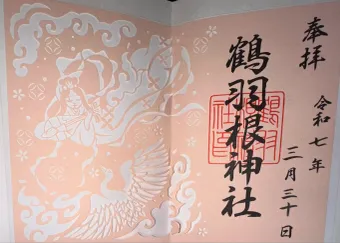 奉拝
令和七年
三月三十日
鶴羽根神社